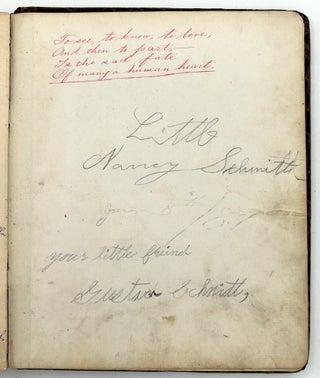 To see, to know, to love,
And then to part,—
Is the sad fate
Of many a human heart.
Little
Nancy Schmitt
your little friend
Gustav Schmitt,